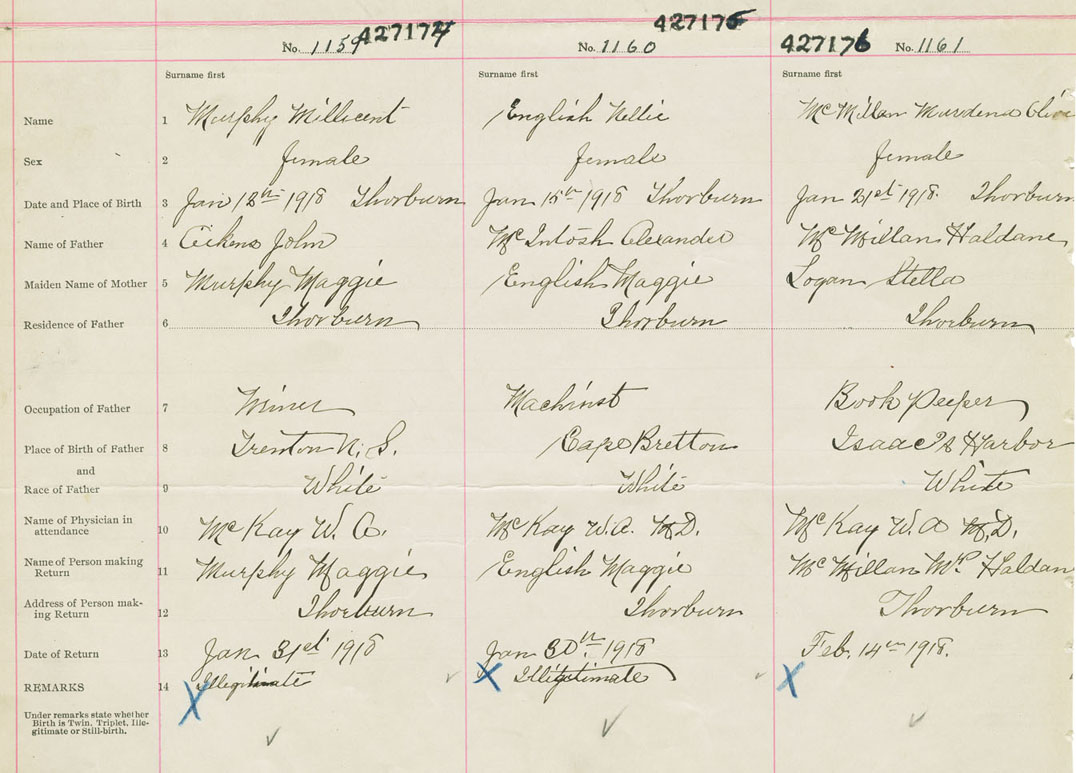 427174 427175 427176
No. 1159 No. 1160 No. 1161
Surname first Surname first Surname first
Name 1 Murphy Millicent English Nellie McMillan Murdena Olive
Sex 2 female female female
Date and Place of Birth 3 Jan 12th 1918 Thorburn Jan 15th 1918 Thorburn Jan 21st 1918. Thorburn
Name of Father 4 John McIntosh Alexander McMillan Haldane
Maiden Name of Mother 5 Murphy Maggie English Maggie Logan Stella
Residence of Father 6 Thorburn Thorburn Thorburn
Occupation of Father 7 Miner Machinst Book Peeper
Place of Birth of Father 8 Trenton N. S. Cape Bretton Isaac's Harbor
and
Race of Father 9 White White White
Name of Physician in
attendance 10 McKay W. A. McKay W. A. M.D. McKay W. A M.D.
Name of Person making
Return 11 Murphy Maggie English Maggie McMillan Mr. Haldan
Address of Person mak-
ing Return 12 Thorburn Thorburn Thorburn
Date of Return 13 Jan 31st 1918 Jan 30th. 1918 Feb. 14th 1918.
REMARKS 14 Illegitimate Illigitimate
Under remarks state whether
Birth is Twin, Triplet, Ille-
gitimate or Still-birth.